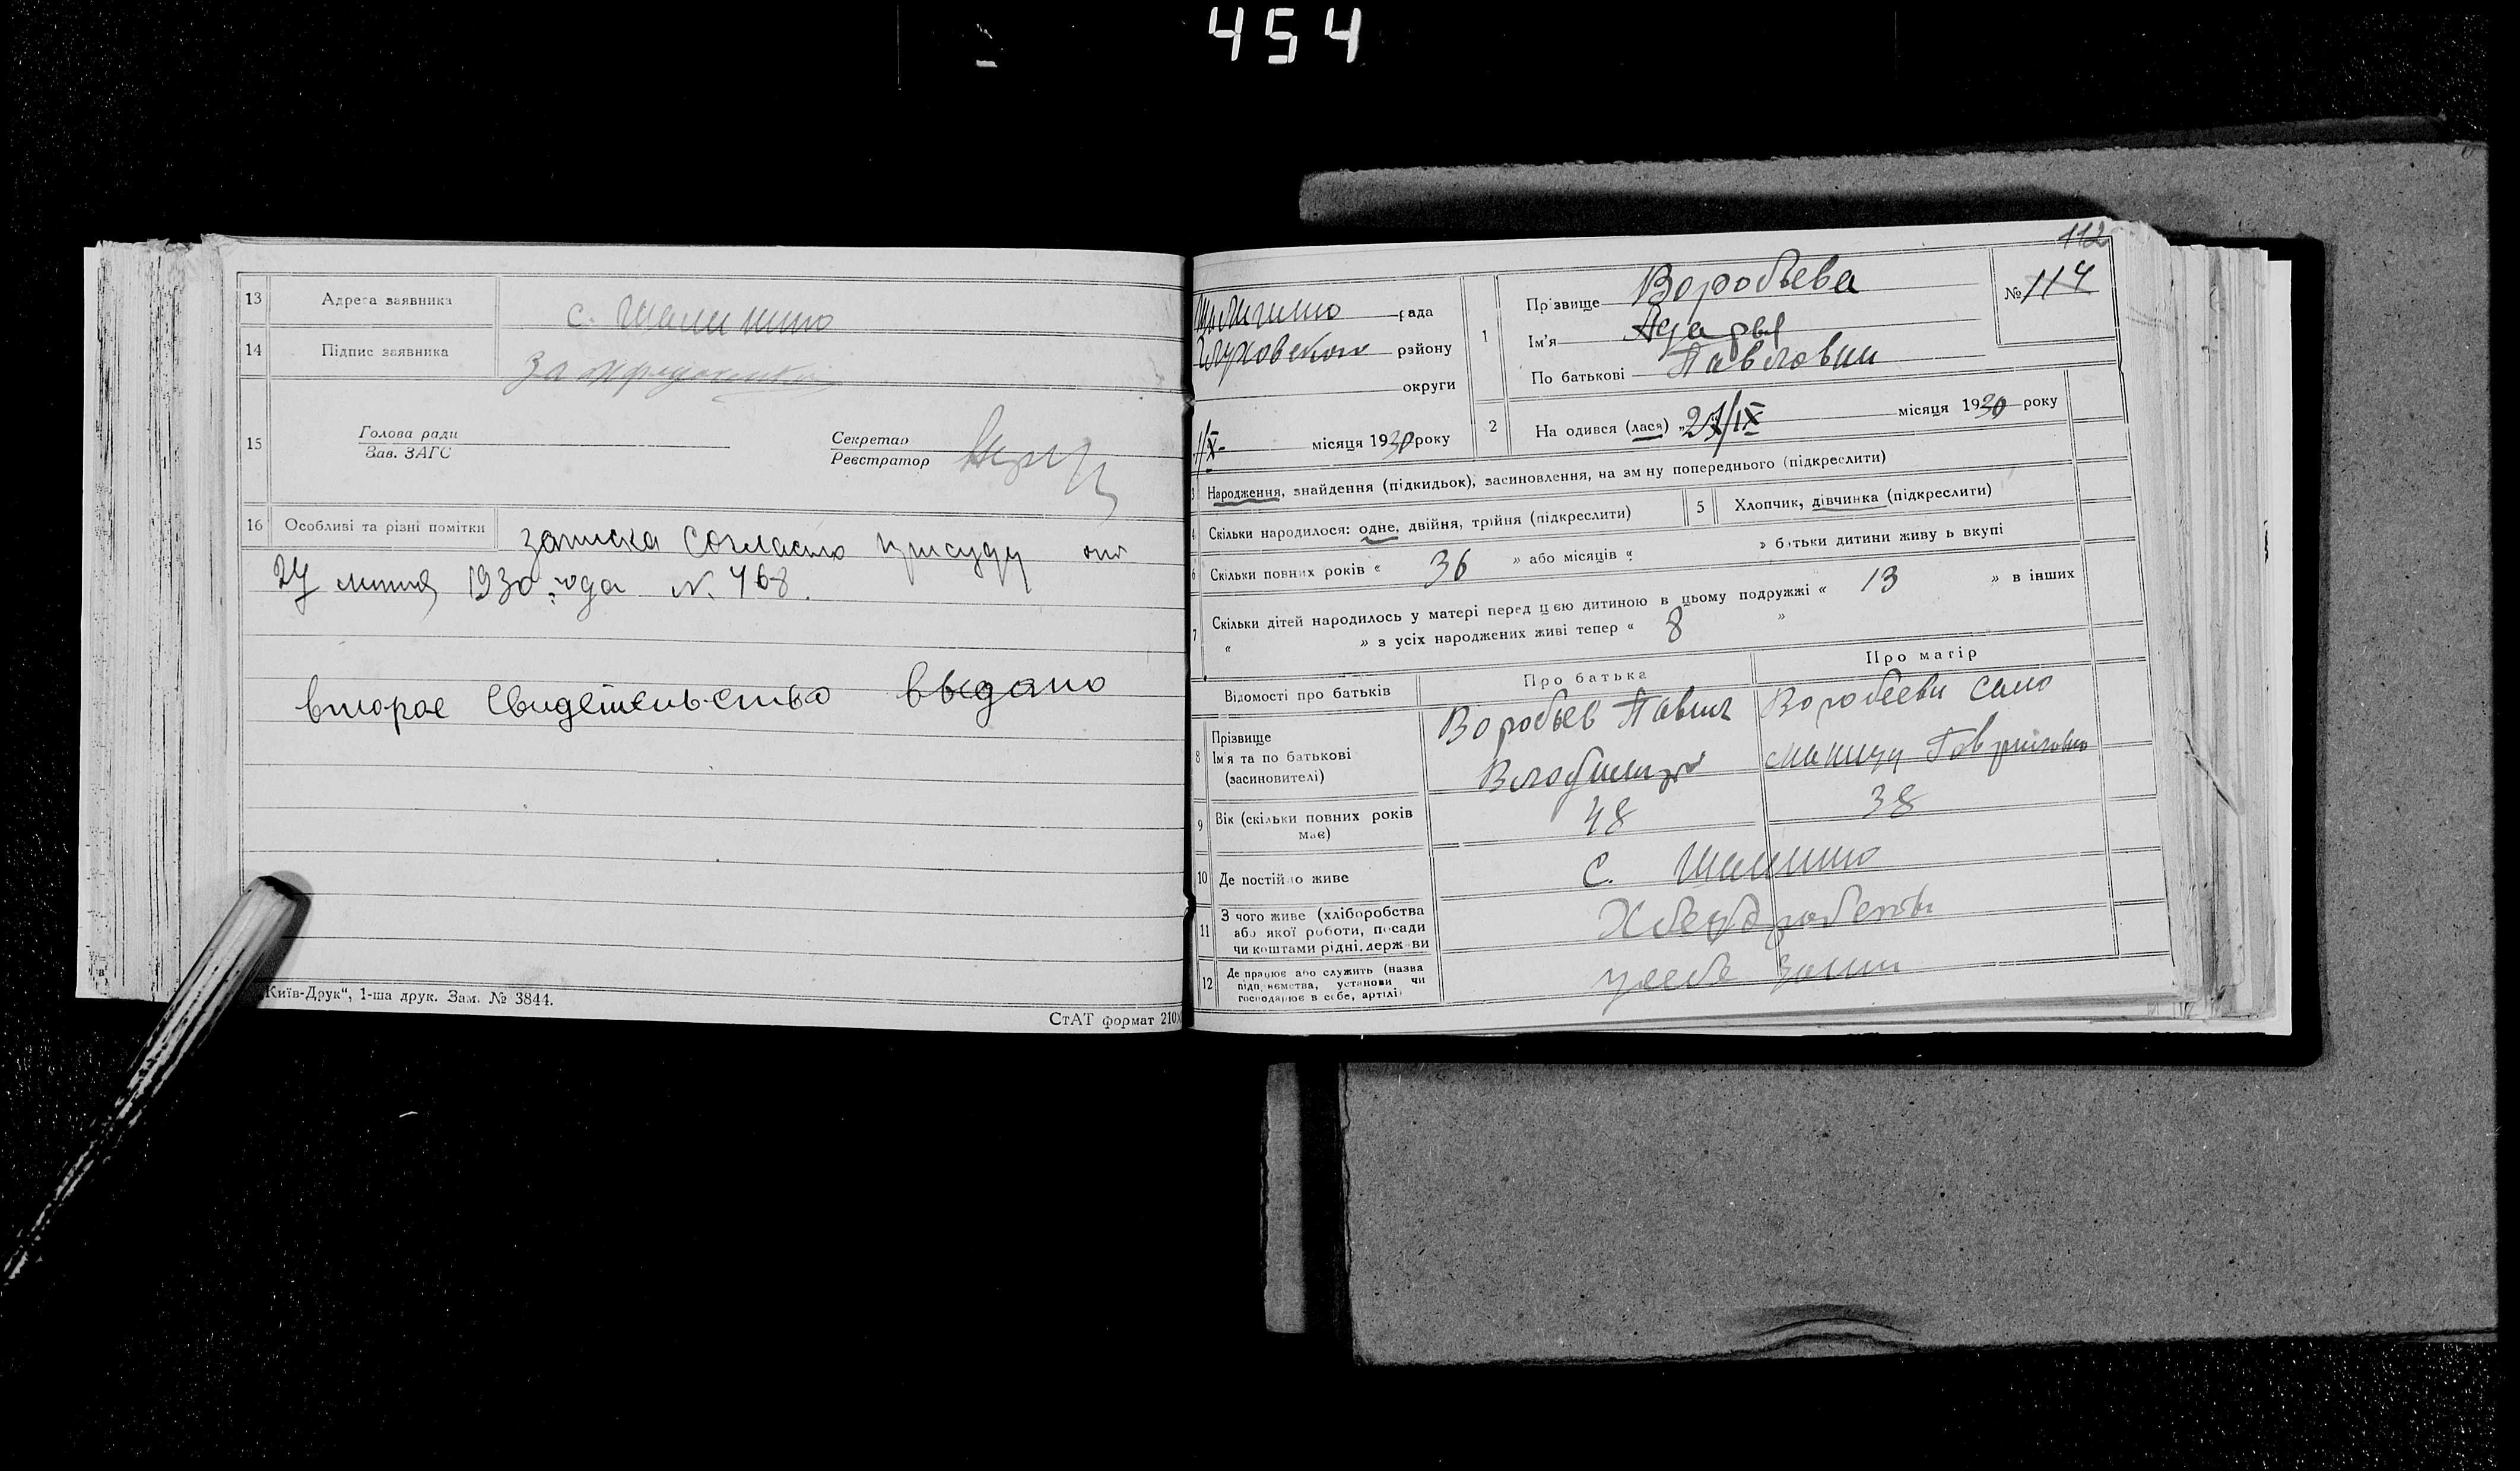 454
13 Адреса заявника с. Шалигино
14 Підпис заявника
15 Голова ради
Зав. ЗАГС
Секретар
Реєстратор
16 Особливі та різні помітки записка согласно присуду от
27 липня 1930 года N. 768.
второе свидетельство выдано
„Київ-Друк“, 1-ша друк. Зам. № 3844.
СтАТ формат 210
112
Шалигино рада
Глуховского району
округи
1/X- місяця 1930 року
1 Прізвище Воробьева
Ім'я
По батькові Павловни
№ 114
2 На одився (лася) „ 21/IX місяця 1930 року
3 Народження, знайдення (підкидьок), засиновлення, на зм ну попереднього (підкреслити)
4 Скільки народилося: одне, двійня, трійня (підкреслити)
5 Хлопчик, дівчинка (підкреслити)
6 Скільки повних років « 36 » або місяців « » батьки дитини живу ь вкупі
7 Скільки дітей народилось у матері перед цією дитиною в цьому подружжі « 13 » в інших
« » з усіх народжених живі тепер « 8 »
Відомості про батьків Про батька Про матір
8 Прізвище
Ім'я та по батькові
(засиновителі)
Воробьев Павил
Воробьеви
9 Вік (скільки повних років
має)
48 38
10 Де постійно живе с. Шалигино
11 З чого живе (хліборобства
або якої роботи, посади
чи коштами рідні, держави
12 Де працює або служить (назва
підприємства, установи чи
господарює в себе, артілі)